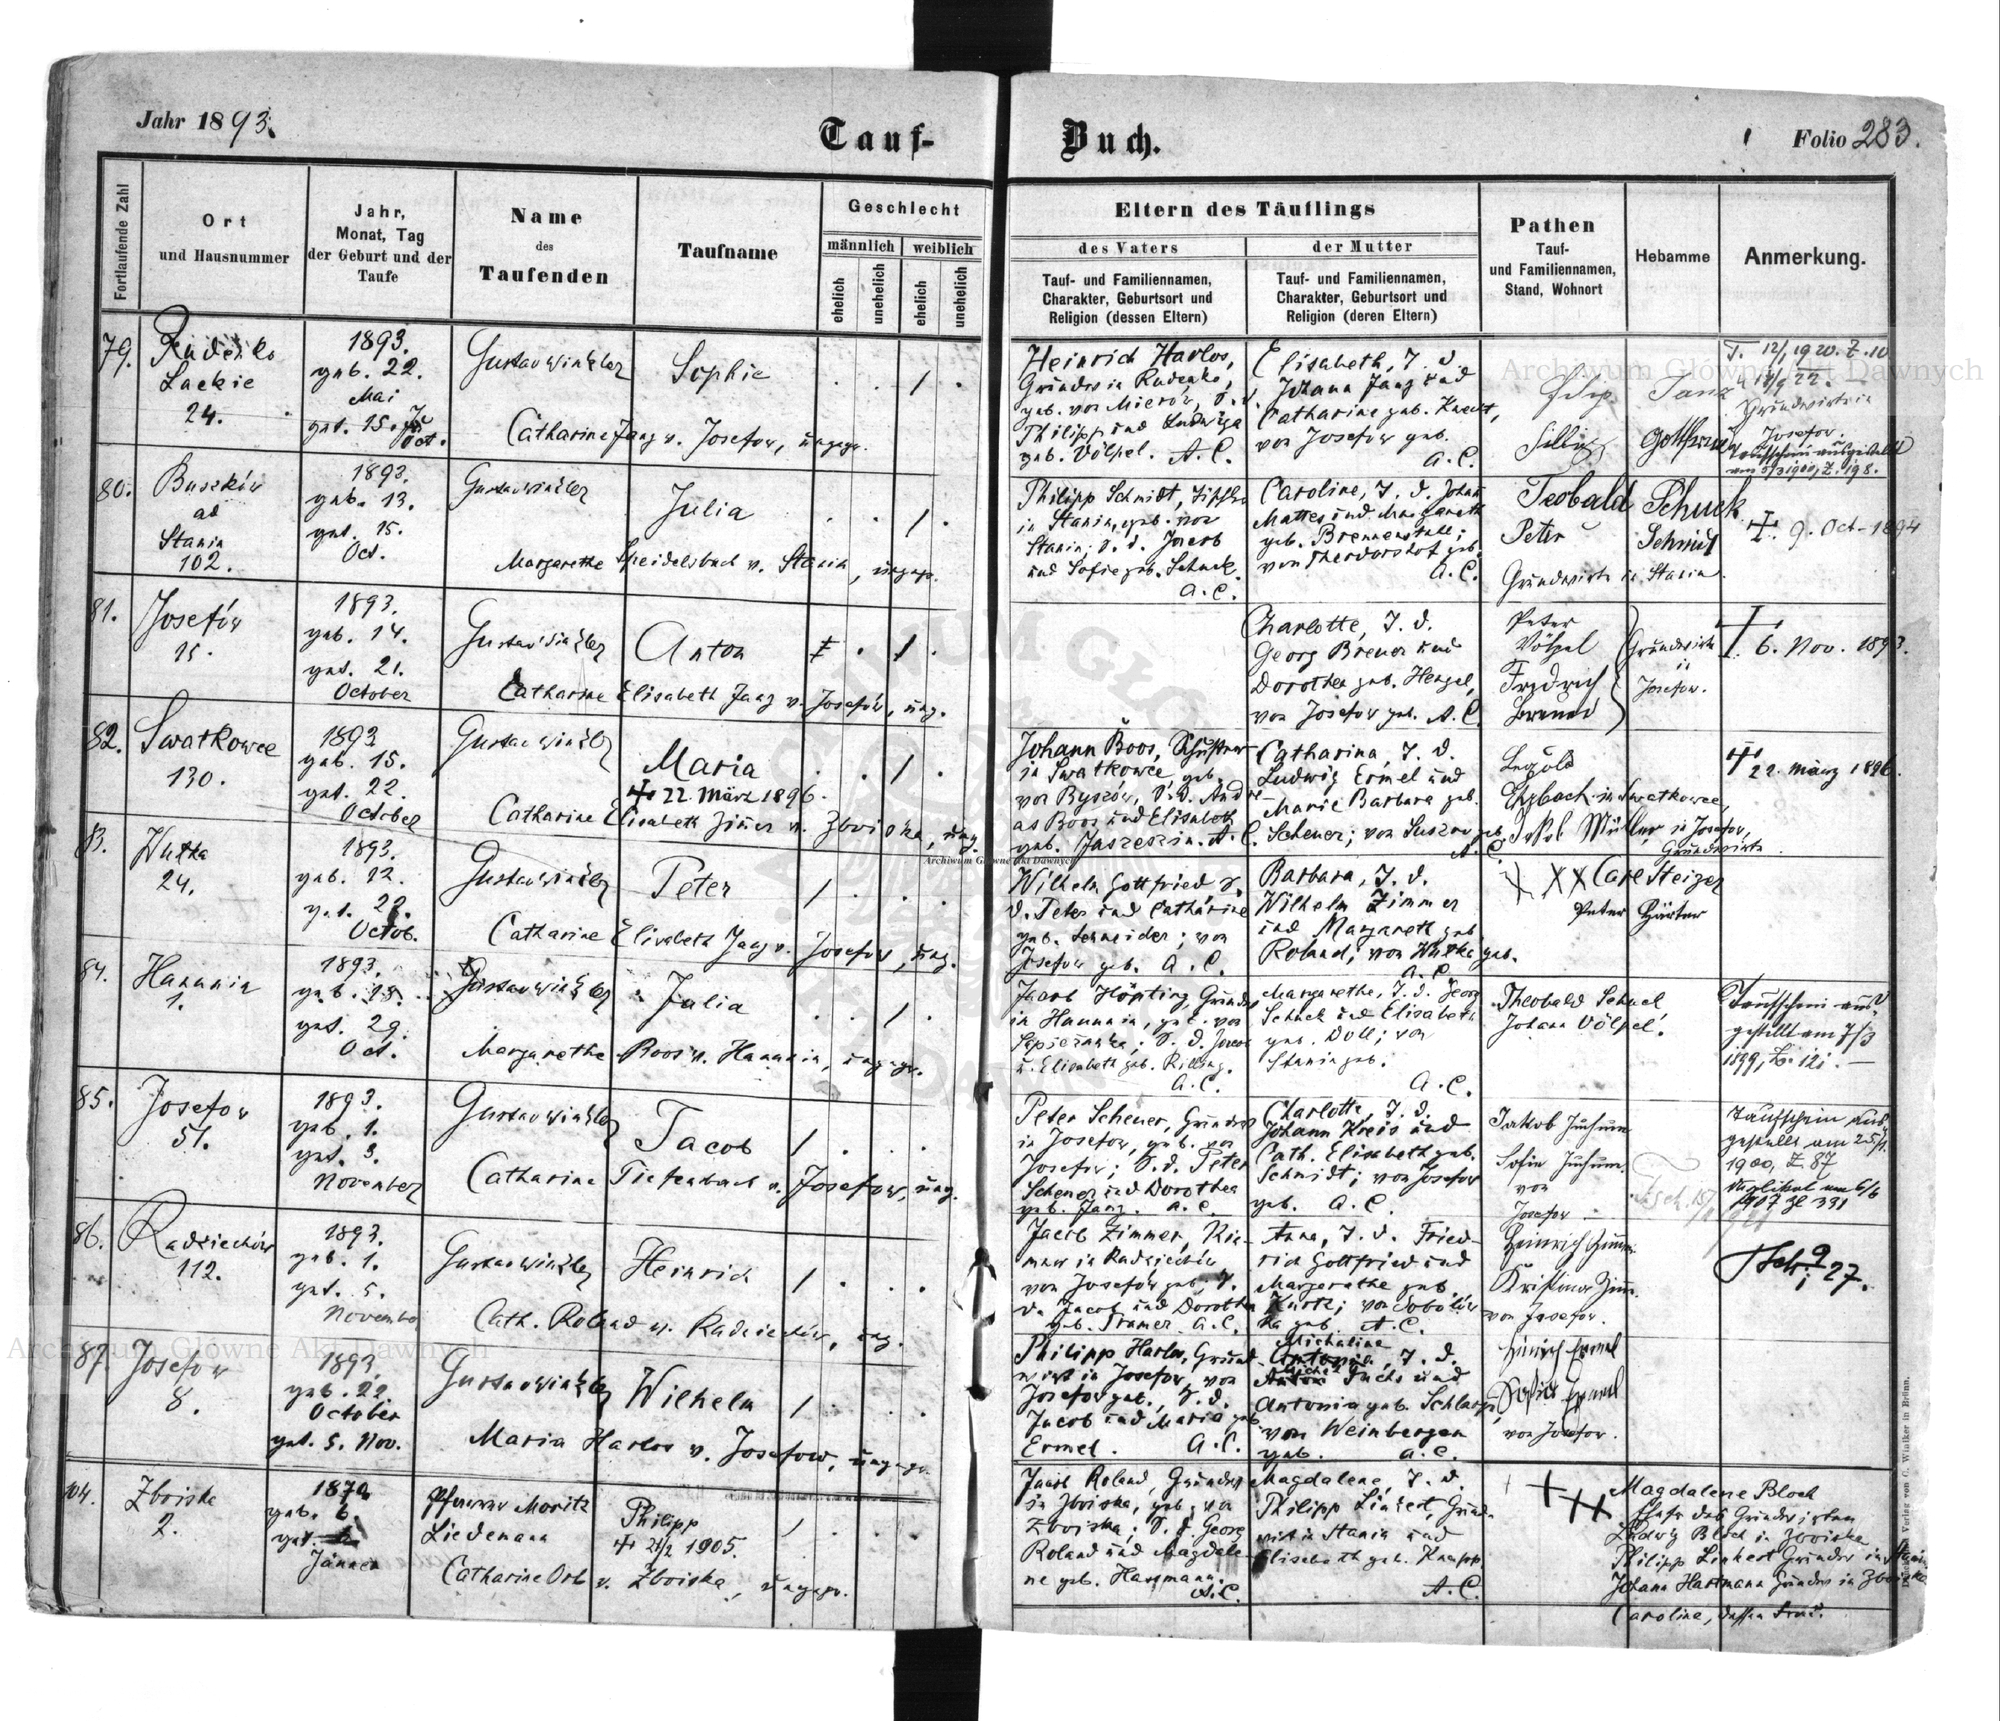 Jahr 1893.
Tauf-
Buch.
Folio 283.
Fortlaufende Zahl
Ort
und Hausnummer
Jahr,
Monat, Tag
der Geburt und der
Taufe
Name
des
Taufenden
Taufname
Geschlecht
männlich
weiblich
ehelich
unehelich
ehelich
unehelich
Eltern des Täuflings
des Vaters
der Mutter
Tauf- und Familiennamen,
Charakter, Geburtsort und
Religion (dessen Eltern)
Tauf- und Familiennamen,
Charakter, Geburtsort und
Religion (deren Eltern)
Pathen
Tauf-
und Familiennamen,
Stand, Wohnort
Hebamme
Anmerkung.
79.
Rudenko
Lackie
24.
1893.
geb. 22.
Mai
get. 15.
Oct.
Gustav Winkler
Sophie
Catharine Jang v. Josefow, ungepr.
Heinrich Harlos,
Grundw in Rudenko,
geb. von Mierów, S. d.
Philipp und Ludwiga
geb. Völpel. A. C.
Elisabeth, T. d.
Johann Jang und
Catharine geb. Knecht,
von Josefow geb.
A. C.
Filip
Jang
Gottfried
Grundwirte in
Josefow.
Taufschein ausgestellt
vom 5/3 1900, Z. 198.
80.
Buszków
ad
Stanin
102.
1893.
geb. 13.
get. 15.
Oct.
Gustav Winkler
Julia
Margarethe Speidelsbach v. Stanin, ungepr.
Philipp Schmidt,
in Stanin, geb. von
Stanin; S. d. Jacob
und Sofie geb. Schuck.
A. C.
Caroline, T. d. Johann
Mattes und Margareth
geb. Brennenstuhl;
von Theodorshof geb.
A. C.
Teobald Schuck
Peter Schmidt
Grundwirte in Stanin.
9. Oct. 1894
81.
Josefów
15.
1893.
geb. 14.
get. 21.
October
Gustav Winkler
Anton
Catharine Elisabeth Jang v. Josefów, ung.
Charlotte, T. d.
Georg Brener und
Dorothea geb. Hengel,
von Josefow geb. A. C.
Peter
Völpel
Fridrich
Brener
Grundwirte
in
Josefow.
6. Nov. 1893.
82.
Swatkowce
130.
1893
geb. 15.
get. 22.
October
Gustav Winkler
Maria
22. März 1896.
Catharine Elisabeth Zimer v. Zboiska, ung.
Johann Boos, Schuster
in Swatkowce, geb.
von Byszów, S. d. Andre-
as Boos und Elisabeth
geb. Jaszeszin. A. C.
Catharina, T. d.
Ludwig Ermel und
Marie Barbara geb.
Scheuer; von Suszno geb.
A. C.
Leopold
Erbach in Swatkowce,
Jakob Müller, in Josefow,
Grundwirte
22. März 1896.
83.
Wutka
24.
1893.
geb. 12.
get. 22.
Octob.
Gustav Winkler
Peter
Catharine Elisabeth Jang v. Josefow, ung.
Archiwum Główne Akt Dawnych
Wilhelm Gottfried S.
d. Peter und Catharine
geb. Schneider; von
Josefow geb. A. C.
Barbara, T. d.
Wilhelm Zimmer
und Margareth geb.
Roland; von Wutka geb.
A. C.
XXX Carl Steizer
Peter Gärtner
84.
Hanunin
1.
1893.
geb. 18.
get. 29.
Oct.
Gustav Winkler
Julia
Margarethe Boos v. Hanunin, ungepr.
Jacob Höpting, Grundw
in Hanunin, geb. von
Sapiezanka; S. d. Jacob
u. Elisabeth geb. Rilling.
A. C.
Margarethe, T. d. Georg
Schuck und Elisabeth
geb. Doll; von
Stanin geb.
A. C.
Theobald Schuck
Johann Völpel.
Taufschein aus-
gestellt am 7/3
1899, Z. 121.
85.
Josefow
51.
1893.
geb. 1.
get. 3.
November
Gustav Winkler
Jacob
Catharine Tiefenbach v. Josefow, ung.
Peter Scheuer, Grundw
in Josefow, geb. von
Josefow; S. d. Peter
Scheuer und Dorothea
geb. Jang. A. C.
Charlotte, T. d.
Johann Kreis und
Cath. Elisabeth geb.
Schmidt; von Josefow
geb. A. C.
Jakob Juchum
Sofie Juchum
von
Josefow
Taufschein aus-
gestellt am 25/1
1900, Z. 87,
Duplikat am 6/6
1907 Zl 391
86.
Radziechów
112.
1893.
geb. 1.
get. 5.
November
Gustav Winkler
Heinrich
Cath. Roland v. Radziechów, ung.
Jacob Zimmer, Rie-
mer in Radziechów
von Josefow geb. S.
d. Jacob und Dorothea
geb. Kramer. A. C.
Anna, T. d. Fried-
rich Gottfried und
Margarethe geb.
Kurtz; von Sobolów
ka geb. A. C.
Heinrich Zimmer
Kristina Zimm.
von Josefow.
87.
Josefow
8.
1893.
geb. 22.
October
get. 5. Nov.
Gustav Winkler
Wilhelm
Maria Harlos v. Josefow, ungepr.
Philipp Harlos, Grund-
wirt in Josefow, von
Josefow geb., S. d.
Jacob und Maria geb.
Ermel. A. C.
Michaline
Antonia, T. d.
Michael
Anton Fuchs und
Antonia geb. Schlarp,
von Weinbergen
geb. A. C.
Heinrich Ermel
Sofie Ermel
von Josefow.
104.
Zboiska
2.
1870
geb. 6.
get.
Jänner
Pfarrer Moritz
Liedemann
Philipp
21/2 1905.
Catharine Orb v. Zboiska, ungepr.
Jacob Roland, Grundw
in Zboiska, geb. von
Zboiska; S. d. Georg
Roland und Magdale-
ne geb. Hartmann.
A. C.
Magdalene, T. d.
Philipp Linkert, Grund-
wirt in Stanin und
Elisabeth geb. Knapp
A. C.
Magdalene Bloch
Ehefr des Grundwirten
Ludwig Bloch in Zboiska
Philipp Linkert Grundw in Stanin
Johann Hartmann Grundw in Zboiska
Caroline, dessen Frau.
Druck und Verlag von C. Winiker in Brünn.
Archiwum Główne Akt Dawnych
Archiwum Główne Akt Dawnych